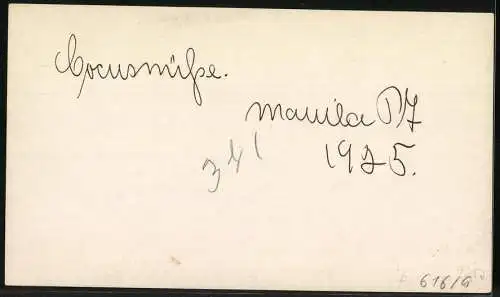 Cocusnüße.
Manila P I
341
1925.
616/9